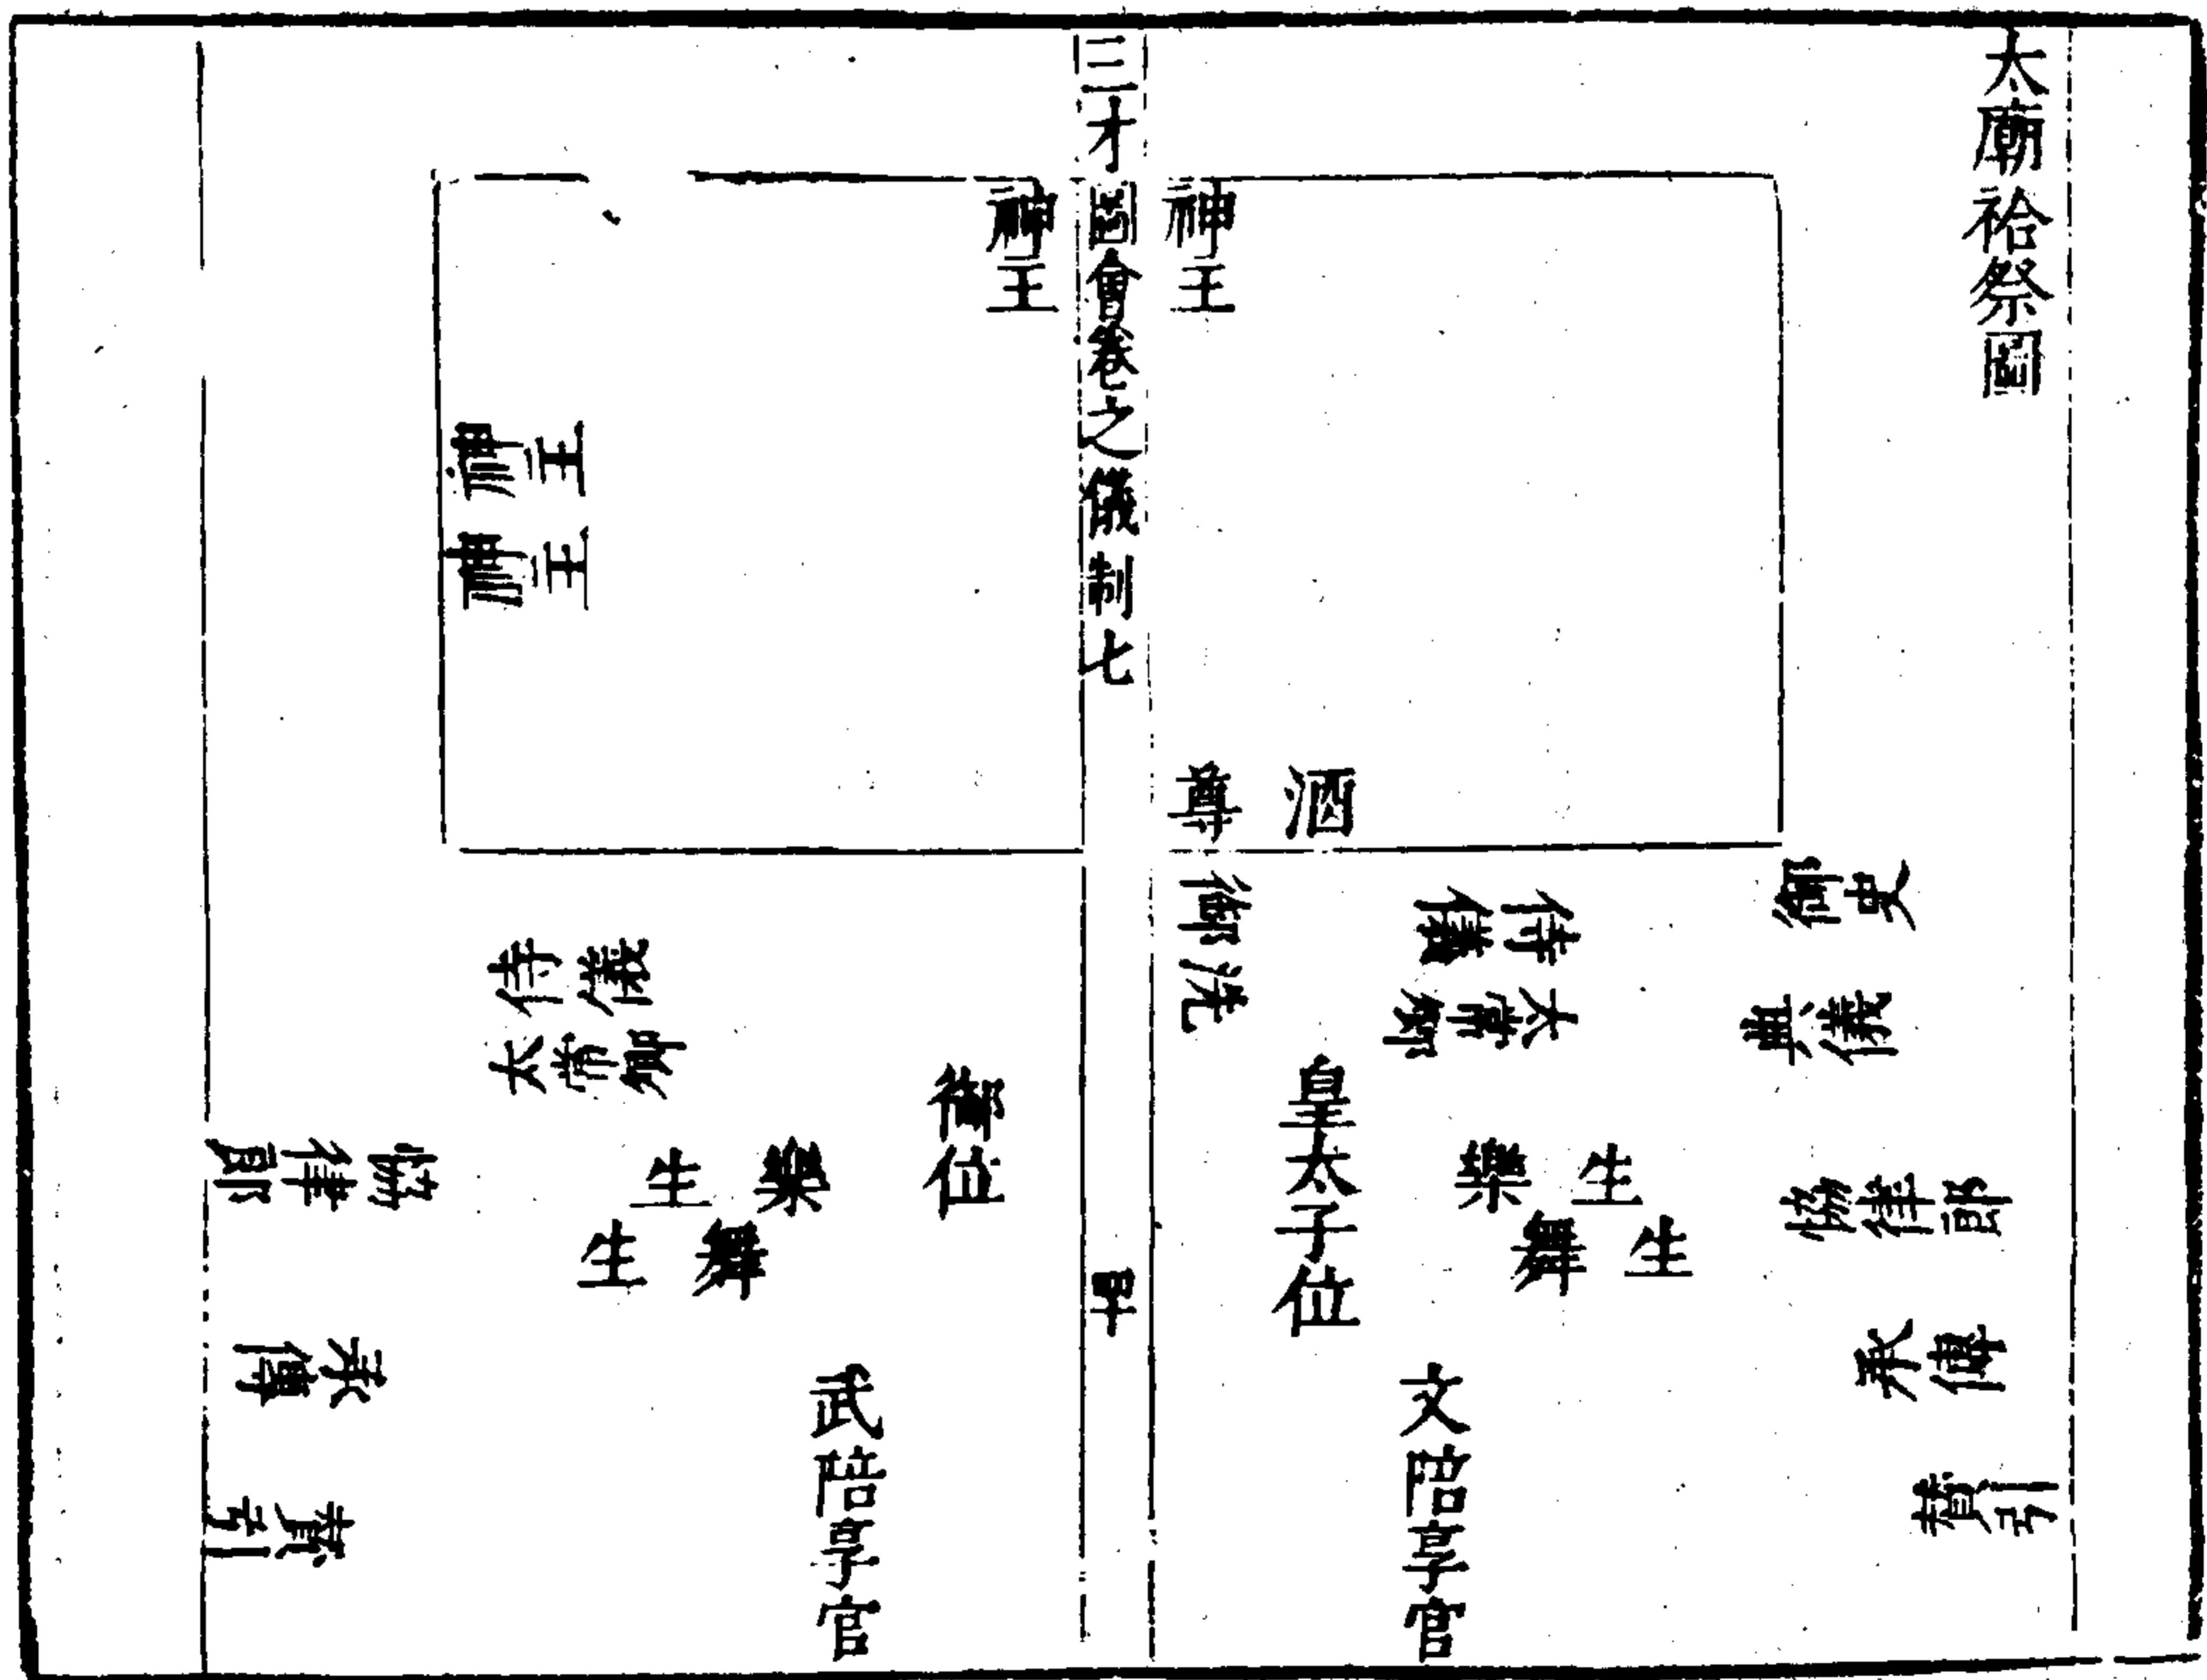 太廟祫祭圖
神主
酒尊
御史
典儀
侍儀
太常卿
御洗
皇太子位
樂生
舞生
協律郎
承傳
贊引
文陪享官
三才圖會卷之儀制七
四十
神主
神主
神主
侍儀
太常卿
御位
樂生
舞生
協律郎
承傳
贊引
武陪享官